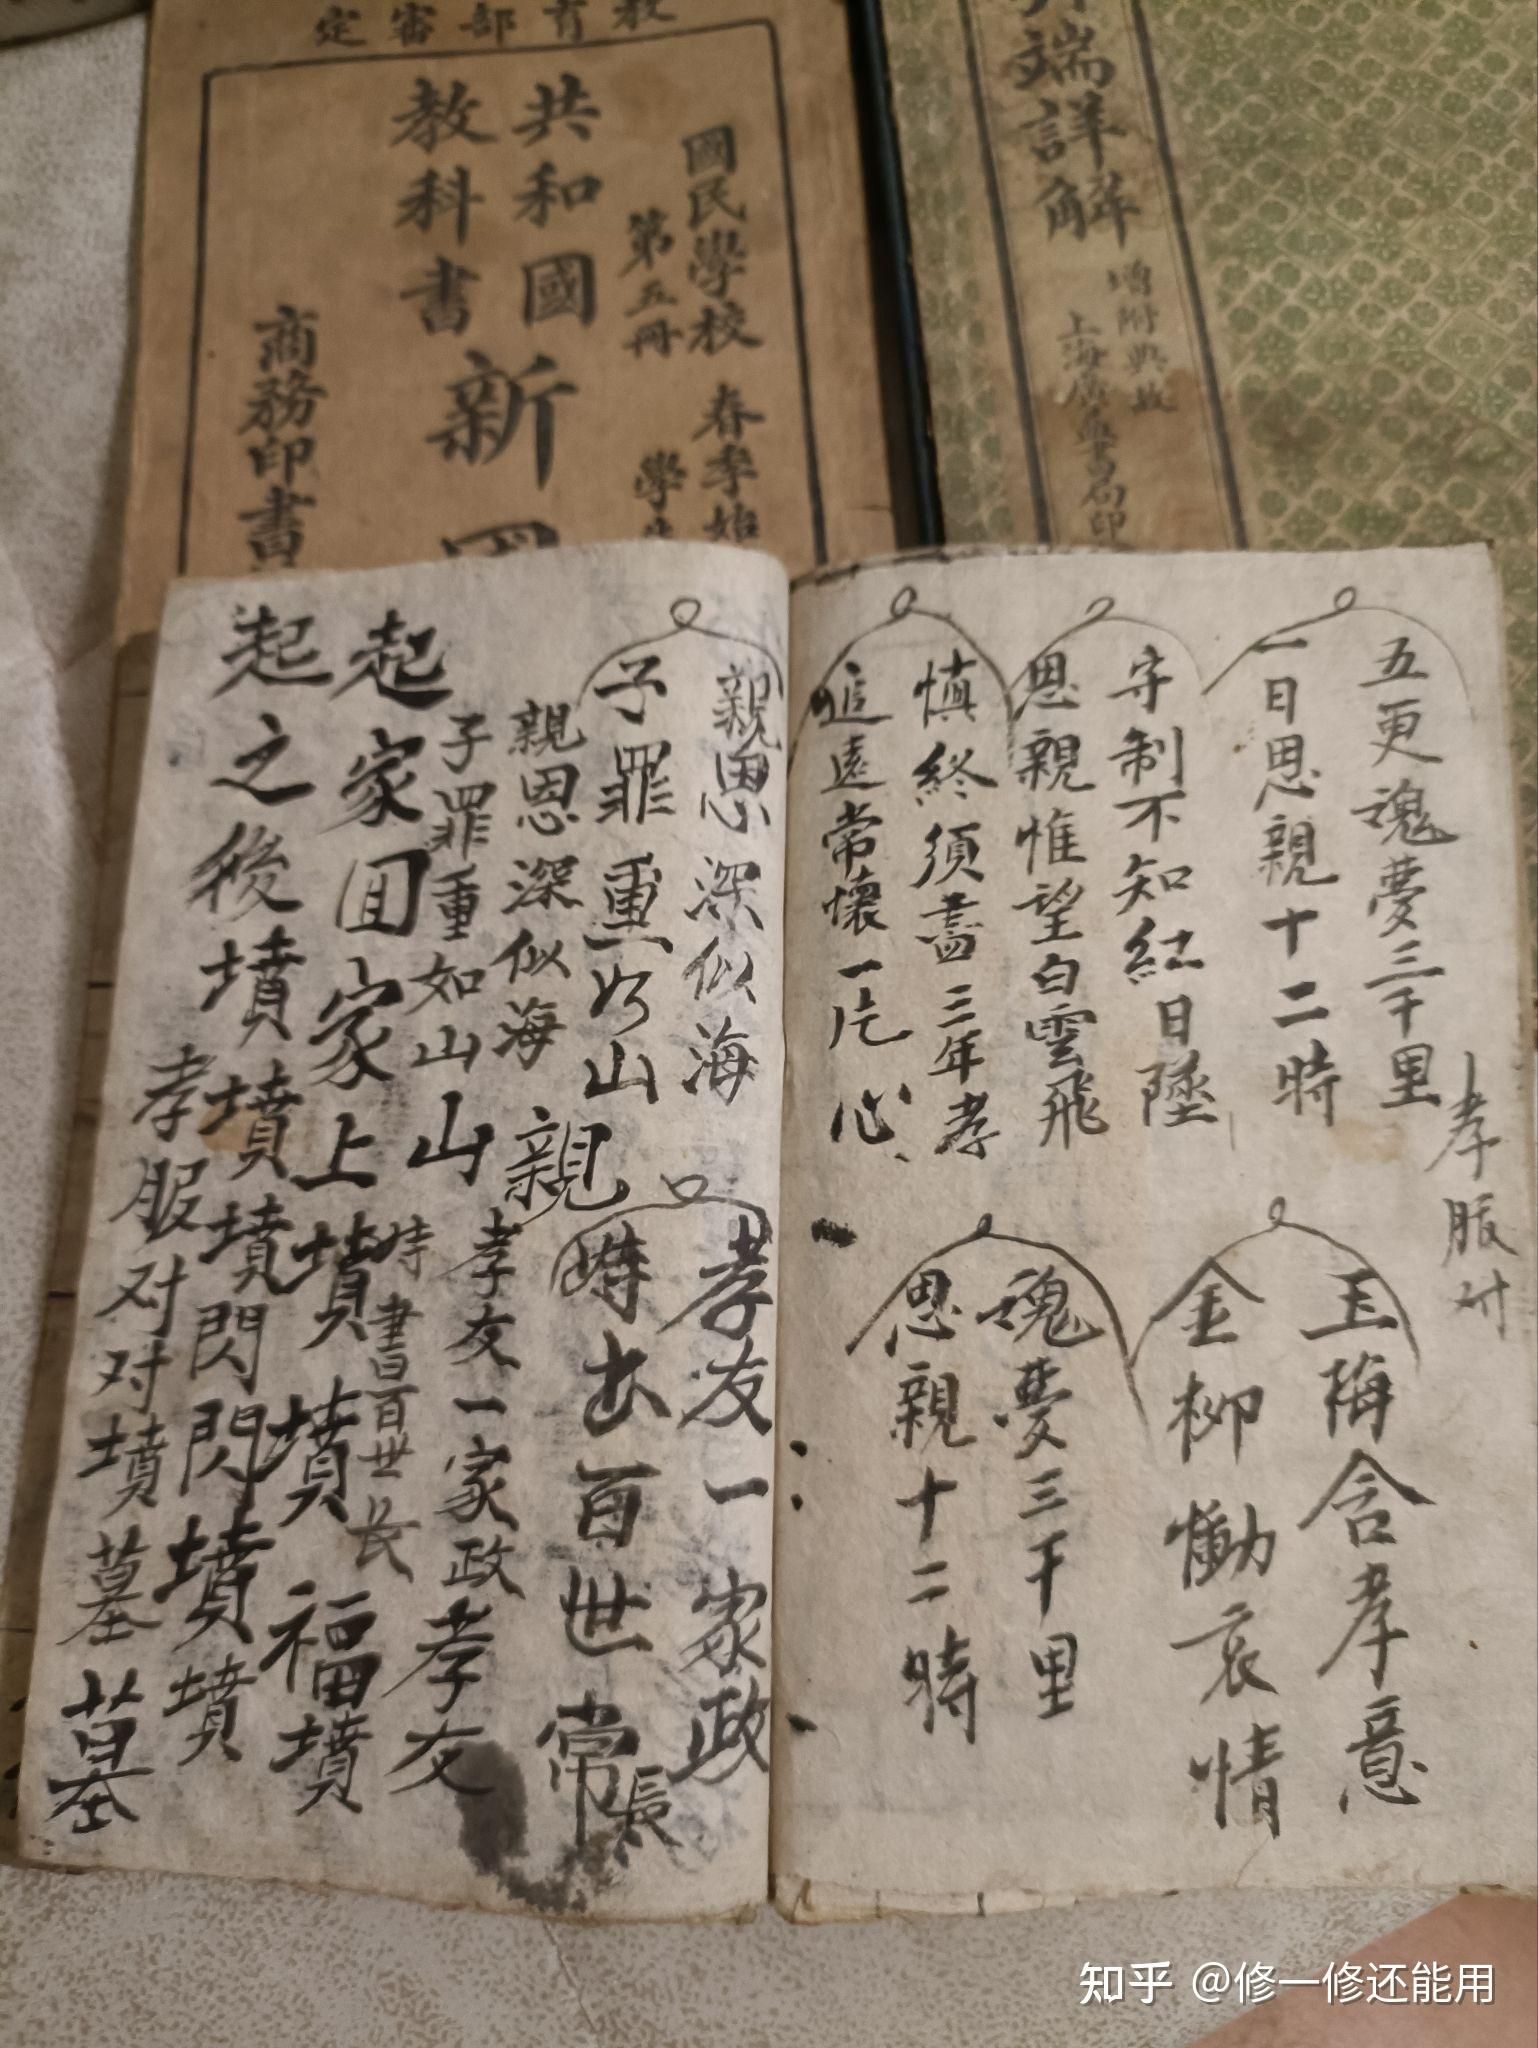 教育部審定
國民學校
春季始
第五冊
學生
共和國
教科書
新國
商務印書
端詳解
增附典故
上海廣益書局印
孝服对
五更魂夢三千里
一日思親十二時
守制不知紅日墜
思親惟望白雲飛
慎終須盡三年孝
追遠常懷一片心
玉梅含孝意
金柳慟哀情
魂夢三千里
思親十二時
親恩深似海
子罪重如山
孝友一家政
時书百世常
長
親恩深似海
親
子罪重如山
山
孝友一家政
孝友
時書百世长
起家
家上墳墳福墳
起之後墳墳墳閃閃墳墳
孝服对对墳墓墓
知乎 @修一修还能用